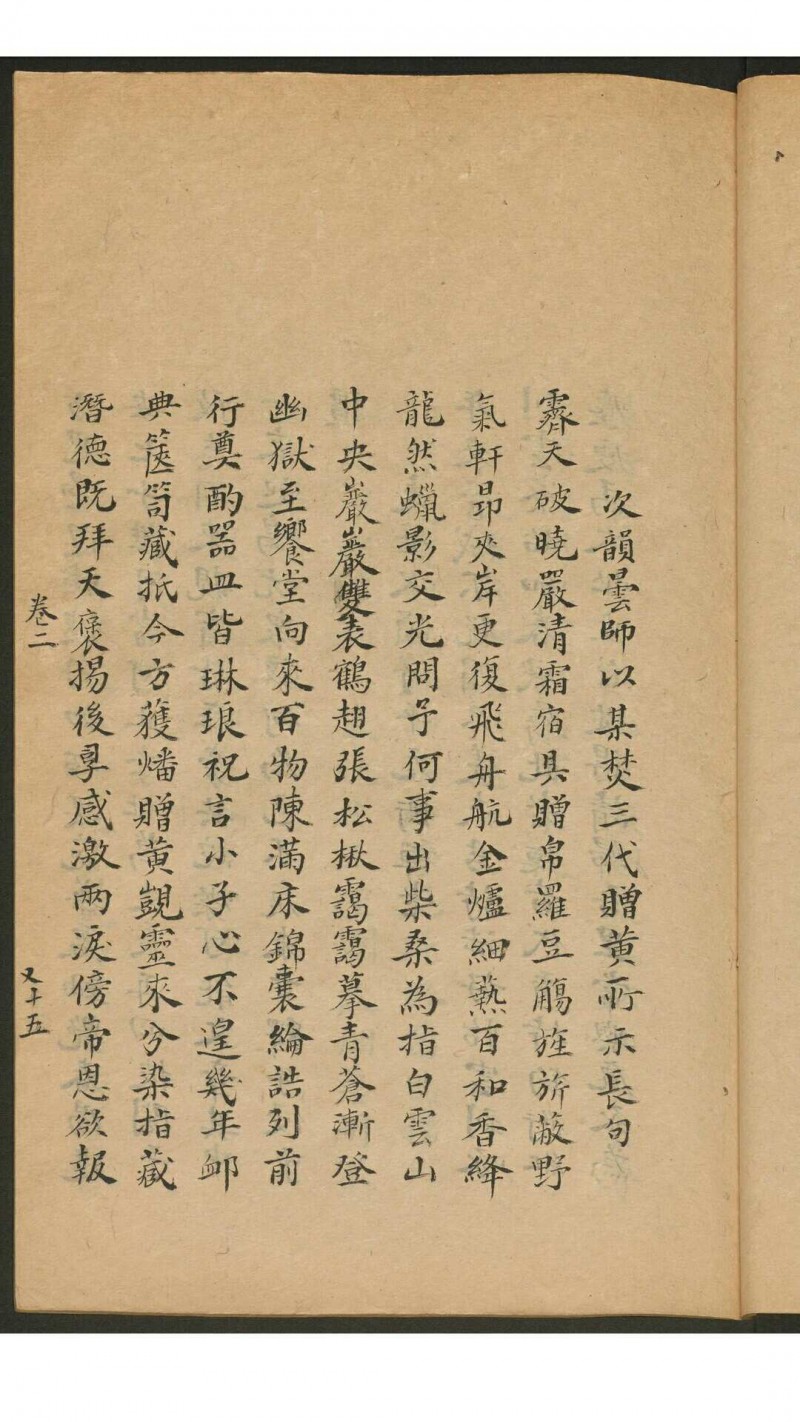 次韻曇師以某焚三代贈黄所示長句
霽天破曉嚴清霜宿具贈帛羅豆觴旌旂蔽野
氣軒昂夾岸更復飛舟航金爐細爇百和香絳
龍然蠟影交光問予何事出柴桑為指白雲山
中央巖巖雙表鶴趐張松楸靄靄摹青蒼漸登
幽獄至饗堂向來百物陳滿床錦囊綸誥列前
行奠酌器皿皆琳琅祝言小子心不遑幾年卹
典篋笥藏抵今方蒦燔贈黄覬靈來兮染指藏
潛德既拜天褒揚後𠅤感激兩淚傍帝恩欲報
卷二
又十五